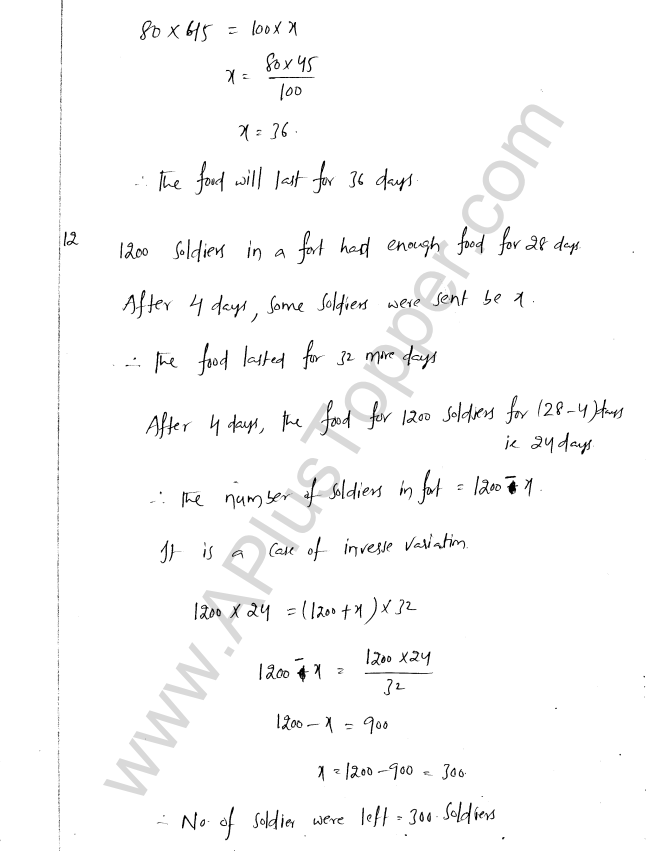 80 × 45 = 100 × x
x = 80 × 45 / 100
x = 36.
∴ The food will last for 36 days.
12 1200 soldiers in a fort had enough food for 28 days
After 4 days, some soldiers were sent be x.
∴ The food lasted for 32 more days
After 4 days, the food for 1200 soldiers for (28-4) days
ie 24 days.
∴ The number of soldiers in fort = 1200 - x.
It is a case of inverse variation.
1200 × 24 = (1200 + x) × 32
1200 - x = 1200 × 24 / 32
1200 - x = 900
x = 1200 - 900 = 300.
∴ No. of soldier were left = 300 soldiers
www.APlusTopper.com